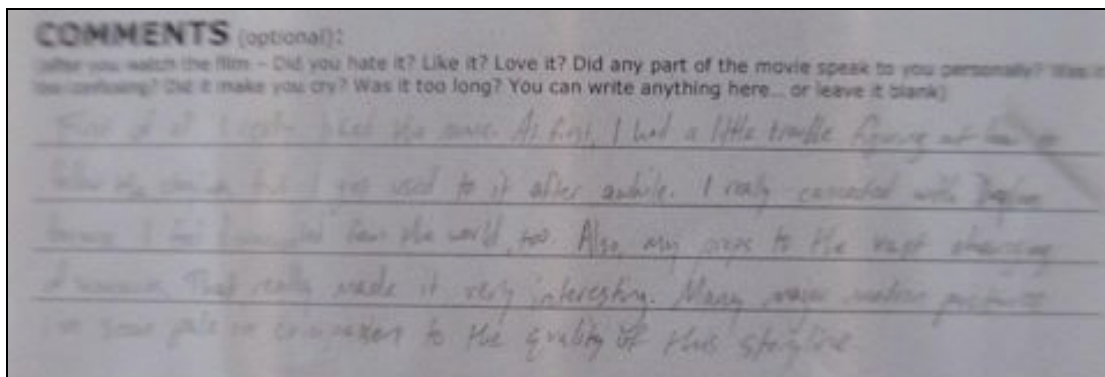 COMMENTS (optional):
(after you watch the film - Did you hate it? Like it? Love it? Did any part of the movie speak to you personally? Was it
too confusing? Did it make you cry? Was it too long? You can write anything here... or leave it blank)
First of all I really liked the movie. At first, I had a little trouble figuring out how to
follow the but I got used to it after awhile. I really connected with
because I feel from the world, too. Also, my props to the
That really made it very interesting. Many major motion pictures
pale in comparison to the quality of this storyline.